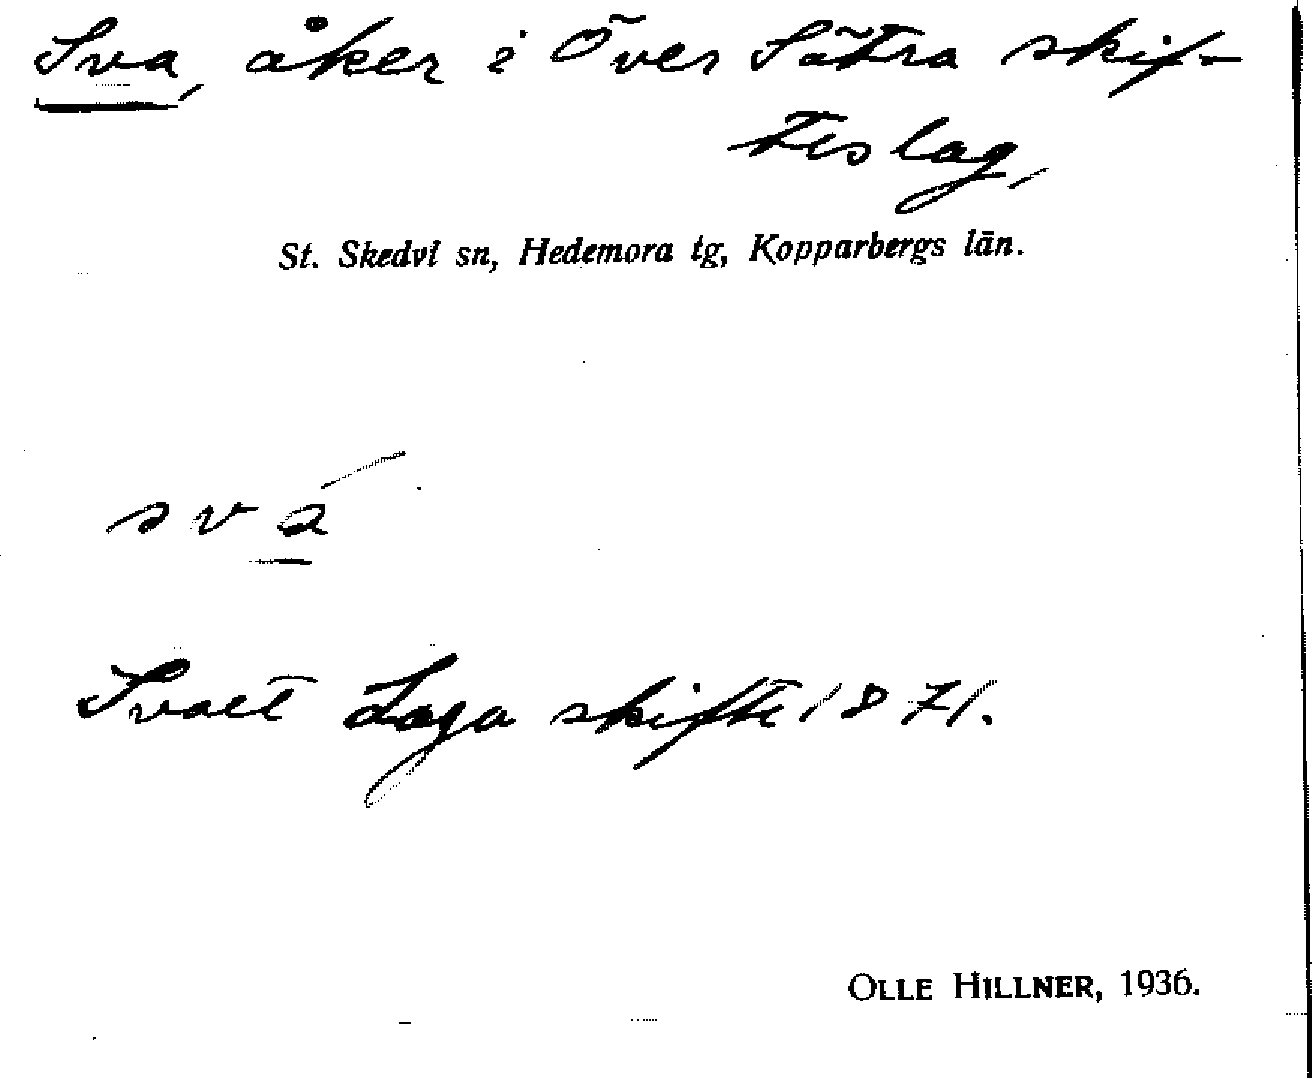 Sva, åker i Över Sätra skif-
teslag,
St. Skedvi sn, Hedemora tg, Kopparbergs län.
svá
Svaet Laga skifte 1871.
OLLE HILLNER, 1936.